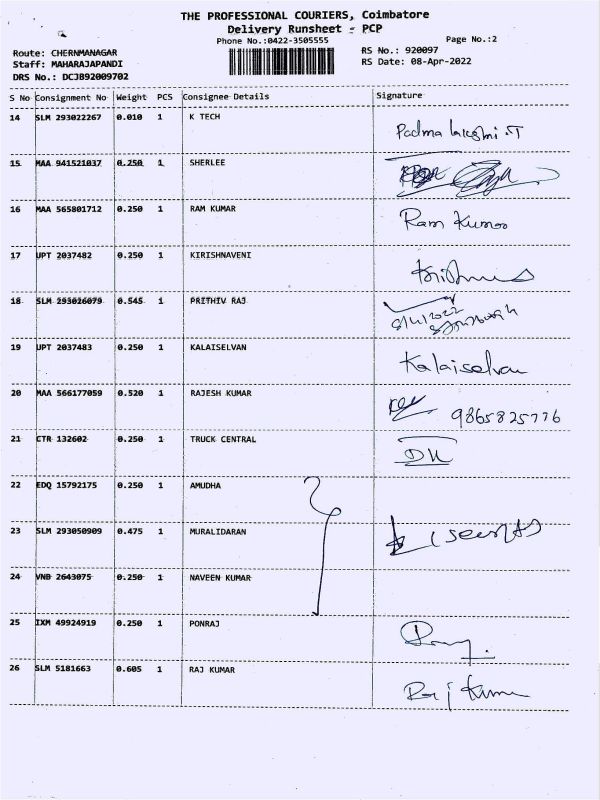 THE PROFESSIONAL COURIERS, Coimbatore
Delivery Runsheet - PCP
Phone No.:0422-3505555
Page No.:2
Route: CHERNMANAGAR
RS No.: 920097
Staff: MAHARAJAPANDI
RS Date: 08-Apr-2022
DRS No.: DCJB92009702
S No Consignment No Weight PCS Consignee Details Signature
14 SLM 293022267 0.010 1 K TECH Padma lakshmi.T
15 MAA 941521037 0.250 1 SHERLEE
16 MAA 565801712 0.250 1 RAM KUMAR Ram Kumar
17 UPT 2037482 0.250 1 KIRISHNAVENI
18 SLM 293026079 0.545 1 PRITHIV RAJ 8/4/2022
19 UPT 2037483 0.250 1 KALAISELVAN Kalaiselvan
20 MAA 566177059 0.520 1 RAJESH KUMAR 9865825776
21 CTR 132602 0.250 1 TRUCK CENTRAL
22 EDQ 15792175 0.250 1 AMUDHA
23 SLM 293050909 0.475 1 MURALIDARAN
24 VNB 2643075 0.250 1 NAVEEN KUMAR
25 IXM 49924919 0.250 1 PONRAJ
26 SLM 5181663 0.605 1 RAJ KUMAR Raj Kumar